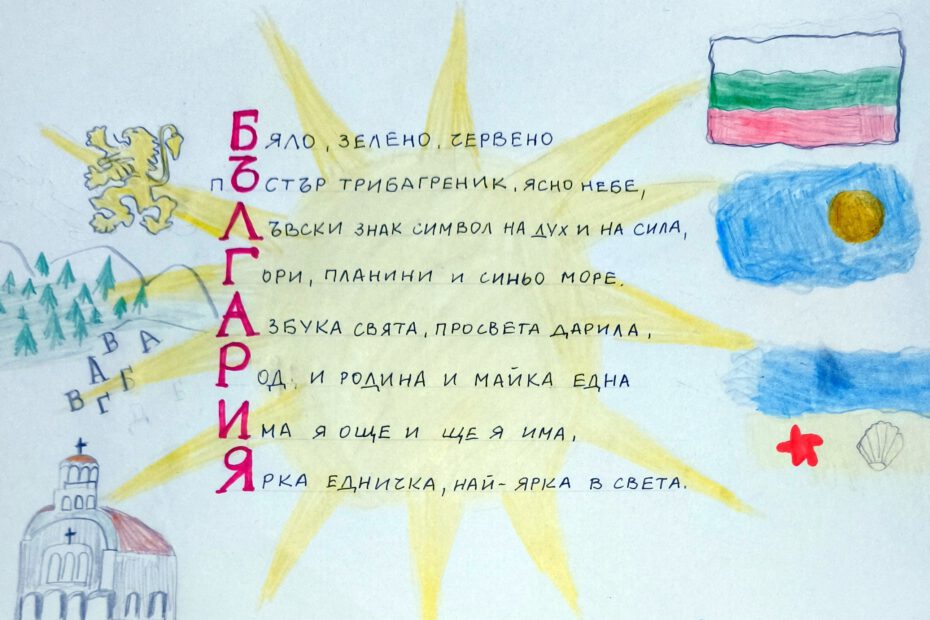 БЯЛО, ЗЕЛЕНО, ЧЕРВЕНО
ПЪСТЪР ТРИБАГРЕНИК, ЯСНО НЕБЕ,
ЛЪВСКИ ЗНАК СИМВОЛ НА ДУХ И НА СИЛА,
ГОРИ, ПЛАНИНИ И СИНЬО МОРЕ.
АЗБУКА СВЯТА, ПРОСВЕТА ДАРИЛА,
РОД, И РОДИНА И МАЙКА ЕДНА
ИМА Я ОЩЕ И ЩЕ Я ИМА,
ЯРКА ЕДНИЧКА, НАЙ-ЯРКА В СВЕТА.
А В А
В Г Б
Д Е